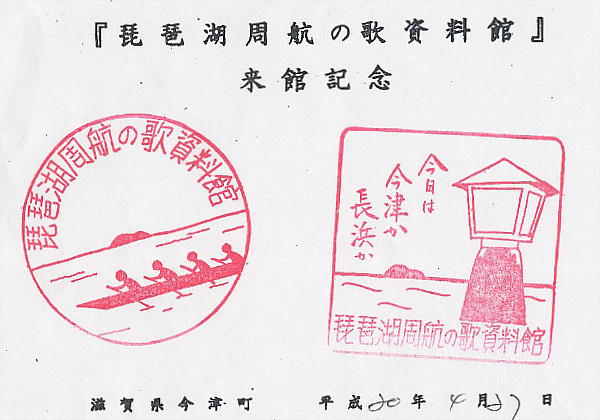 『琵琶湖周航の歌資料館』
来館記念
琵琶湖周航の歌資料館
今日は
今津か
長浜か
琵琶湖周航の歌資料館
滋賀県今津町 平成20年4月27日